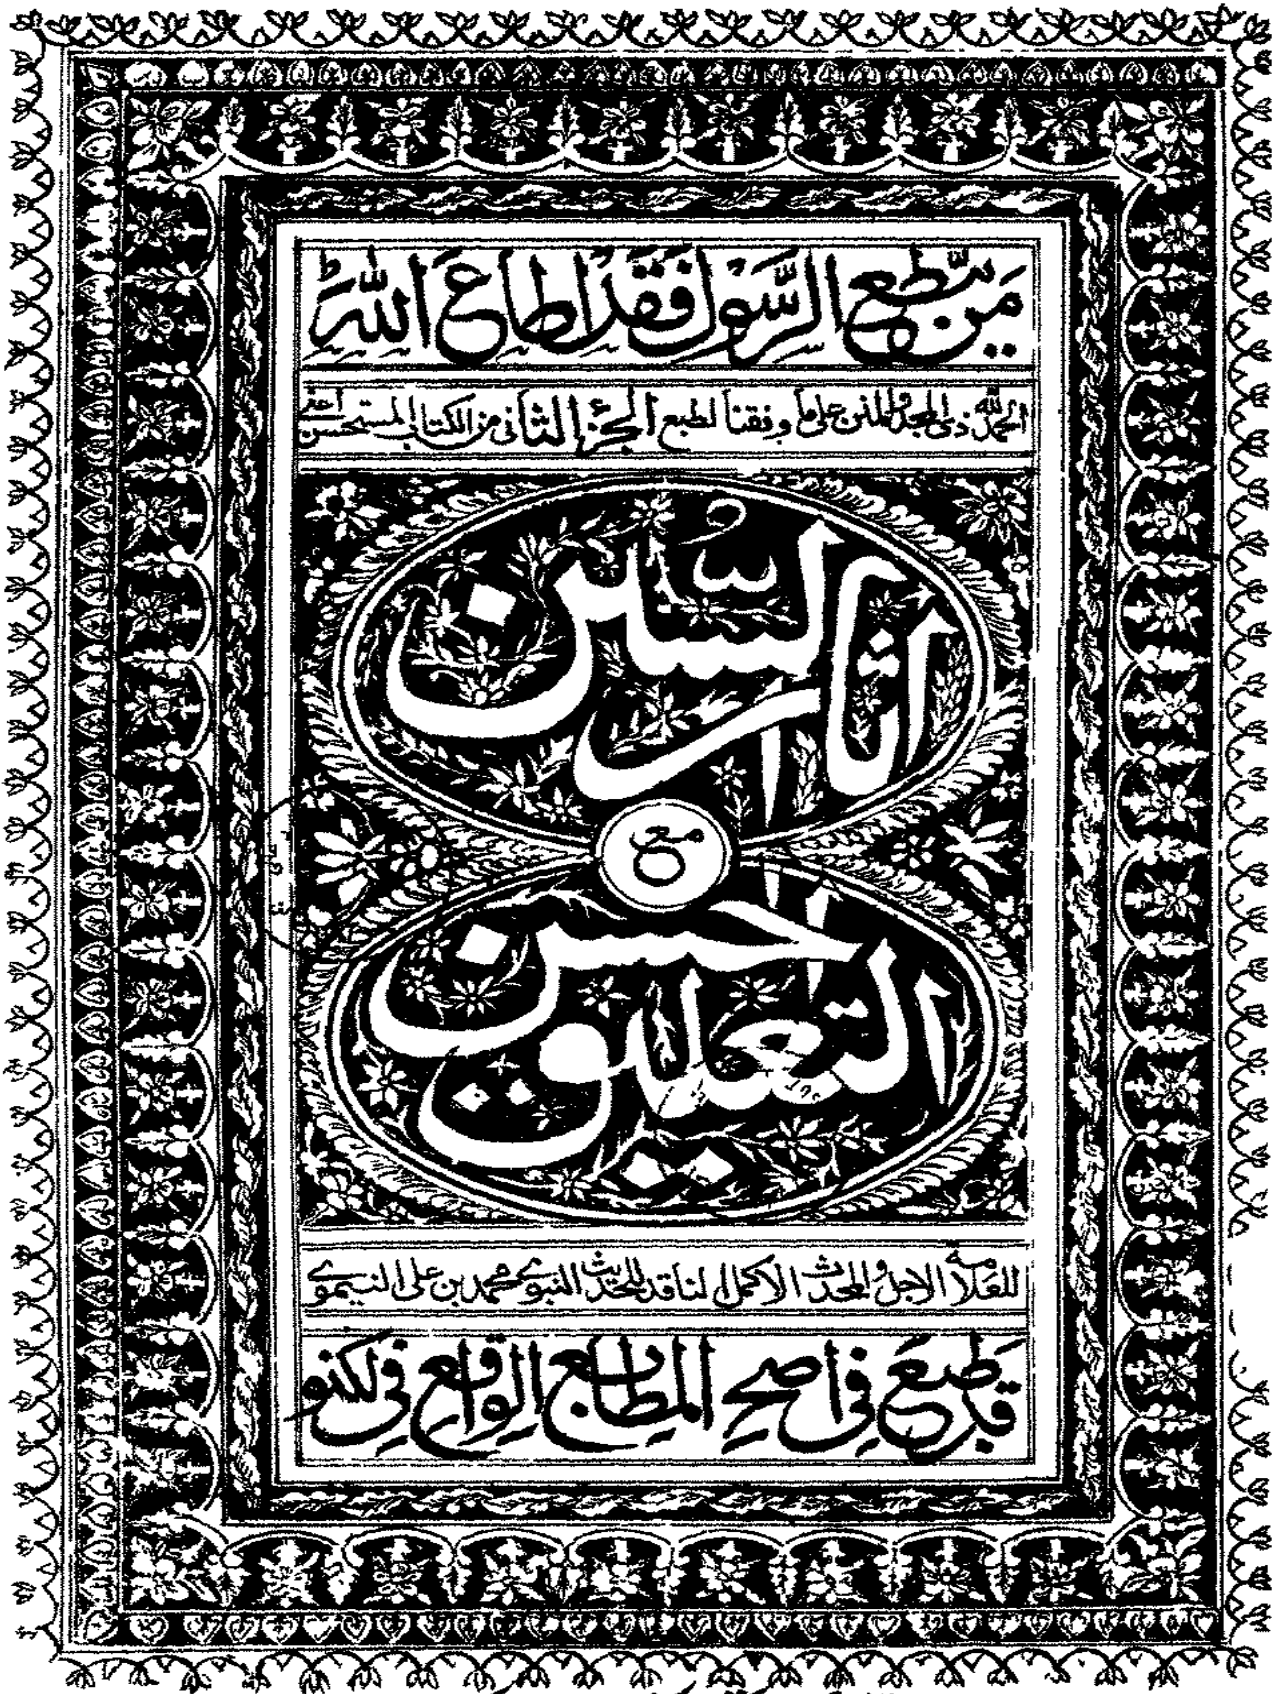 مَن يُّطِعِ الرَّسُولَ فَقَدْ اَطَاعَ اللهَ
الحمد لله ذى المجد والمنن على ما وفقنا لطبع الجزء الثانى من الكتاب المستحسن اعنى
اثار السُّنن
مع
التعليق الحسن
للعلامة الاجل والمحدث الاكمل الناقد للحديث النبوى محمد بن على النيموى
قَد طُبعَ فِى اصحِ المطابع الواقع فى لكنو